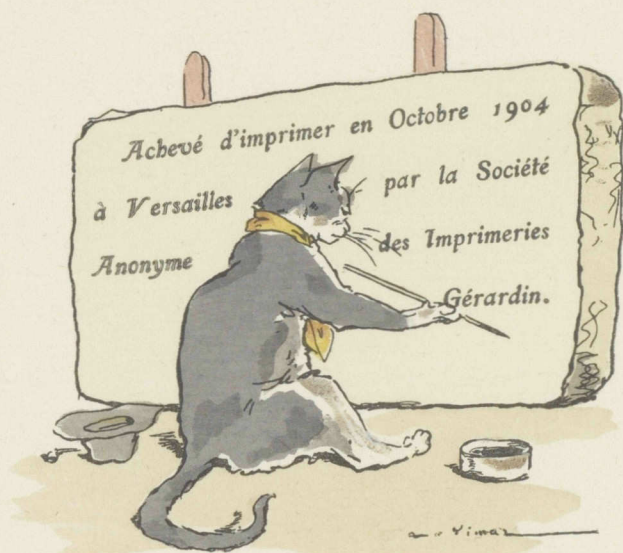 Achevé d'imprimer en Octobre 1904
à Versailles par la Société
Anonyme des Imprimeries
Gérardin.